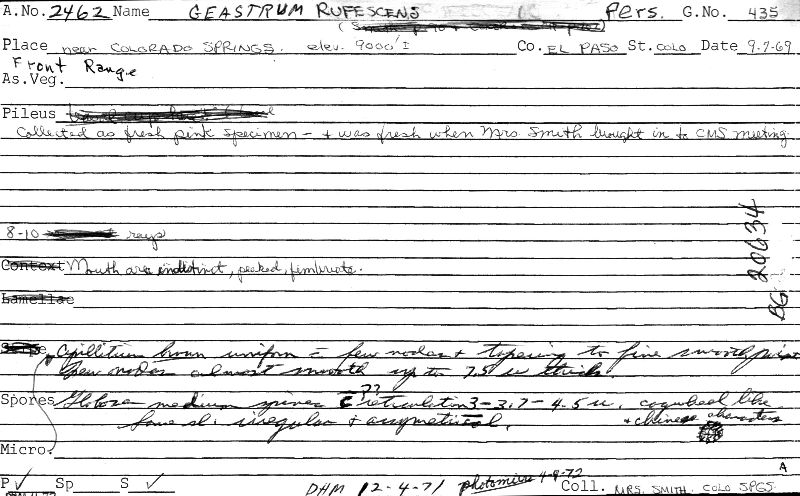 A.No. 2462 Name GEASTRUM RUFESCENS Pers. G.No. 435
Place near COLORADO SPRINGS. elev. 9000' Co. EL PASO St. COLO Date 9-7-69
Front Range
As.Veg.
Pileus
Collected as fresh pink specimen - + was fresh when Mrs. Smith brought in to CMS meeting.
8-10 rays
Context Mouth area indistinct, peaked, fimbriate.
Lamellae
BG 20634
Stipe Capillitium brown uniform = few nodes + tapering to fine smooth point
few nodes almost smooth up to 7.5 u thick.
??
Spores Globose medium spines c reticulation 3-3.7-4.5 u. cogwheel like
some sl. irregular & assymetrical. + chinese characters
Micro.
A
P ✓ Sp S ✓ DHM 12-4-71 photomicro 4-9-72 Coll. MRS. SMITH, COLO SPGS